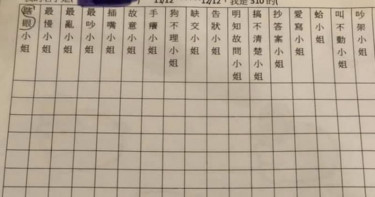 12/12，我是 310 的
小姐
最慢小姐
最亂小姐
最吵小姐
插嘴小姐
故意小姐
手癢小姐
狗不理小姐
缺交小姐
告狀小姐
明知故問小姐
搞不清楚小姐
抄答案小姐
愛寫小姐
蛤小姐
叫不動小姐
吵架小姐